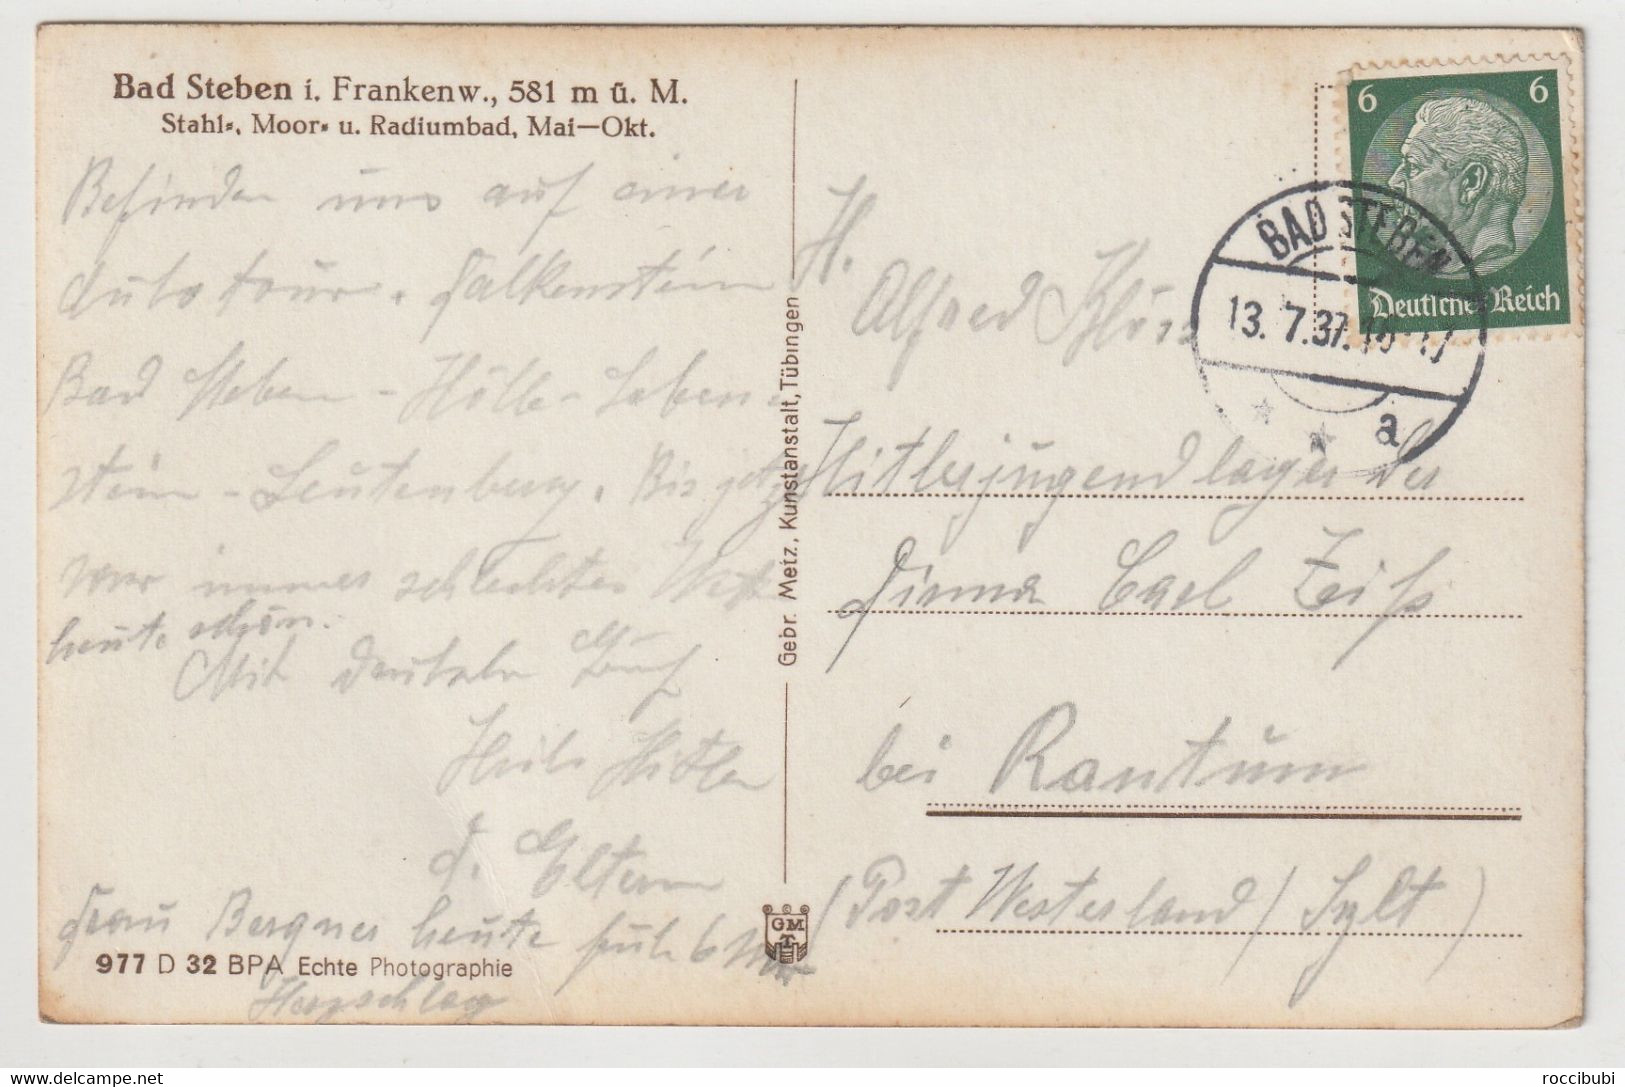 Bad Steben i. Frankenw., 581 m ü. M.
Stahl-, Moor- u. Radiumbad, Mai—Okt.
Befinden uns auf einer
Autotour. Falkenstein
Bad Steben - Hölle - Loben-
stein - Leutenberg. Bis jetzt
war immer schlechtes Wetter
heute schön.
Mit deutschem Gruß
Heil Hitler
d. Eltern
Frau Bergner heute früh 6 Uhr
Herzschlag
977 D 32 BPA Echte Photographie
Gebr. Metz, Kunstanstalt, Tübingen
GMT
6 6
Deutsches Reich
BAD STEBEN
13.7.37.
a
H.
Alfred
Hitlerjugendlager der
Firma Carl Zeiß
bei Rantum
(Post Westerland / Sylt)
roccibubi